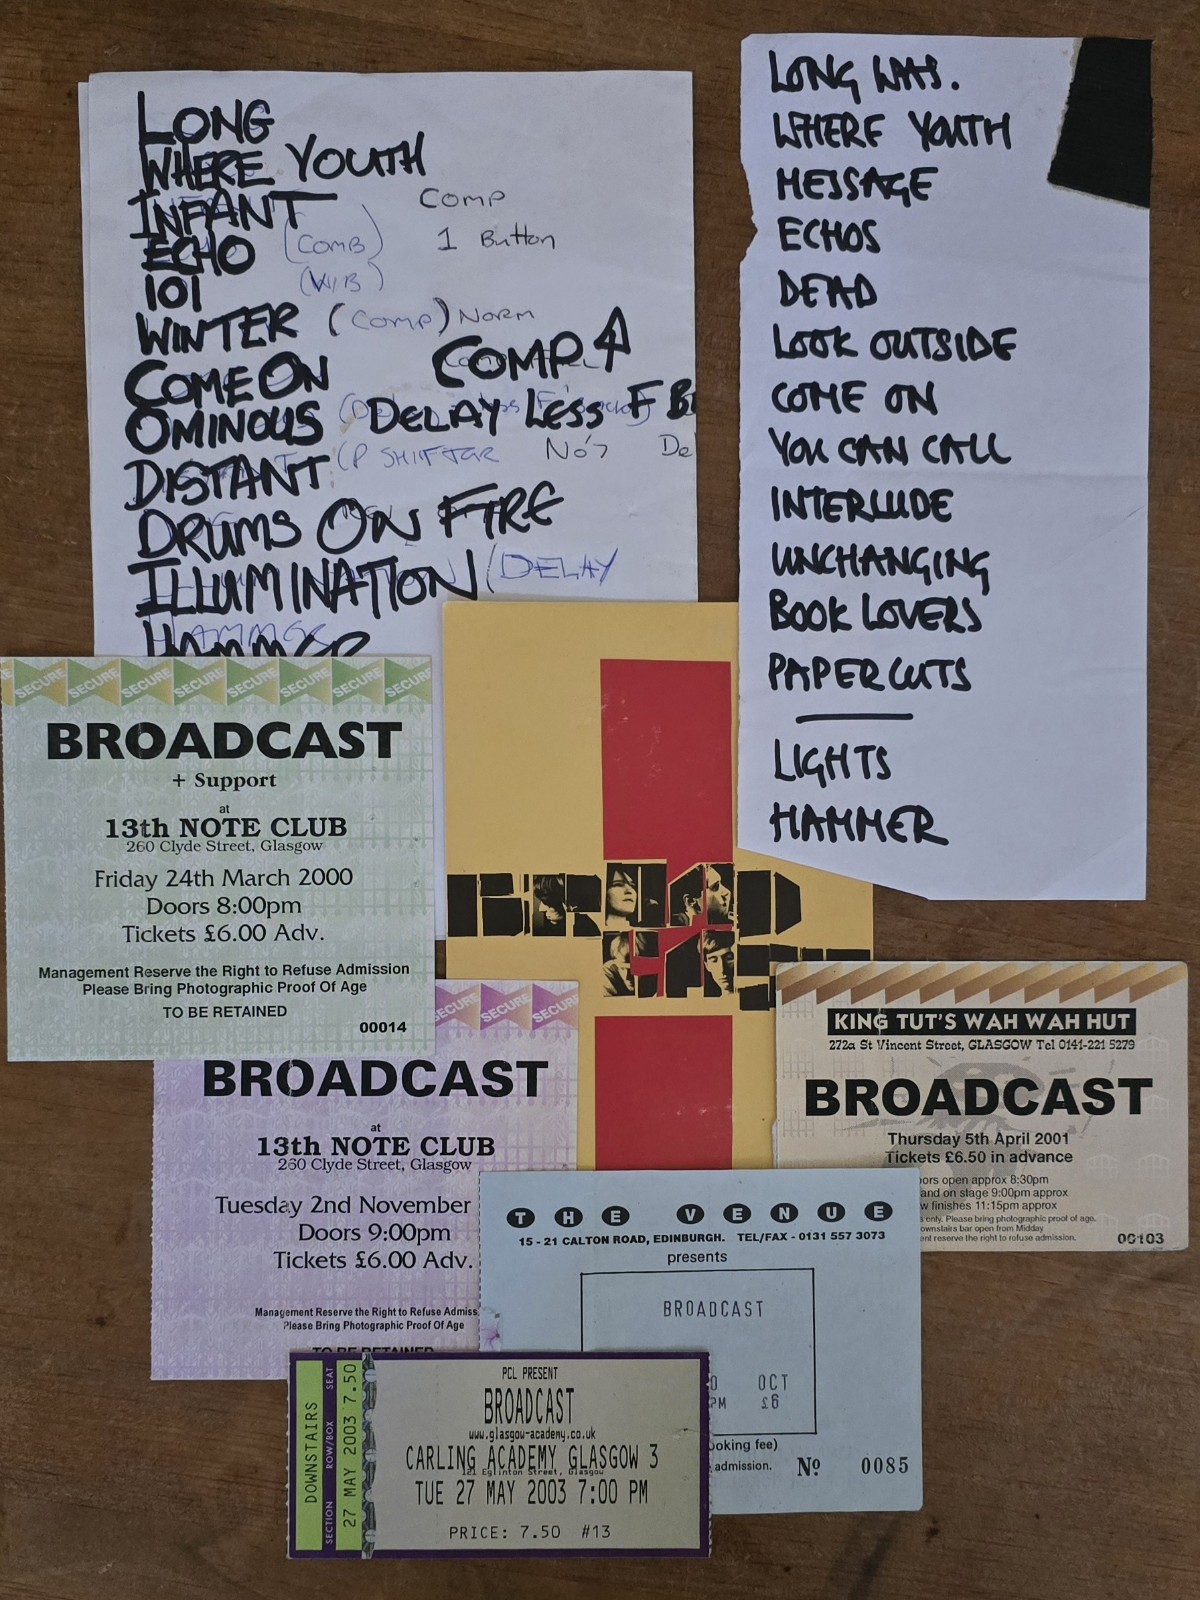 LONG
WHERE YOUTH
INFANT
Comp
ECHO (COMB) 1 Button
101 (W/B)
WINTER (COMP) NORM
COME ON COMP
OMINOUS DELAY LESS F
DISTANT (P SHIFTER No's De
DRUMS ON FIRE
ILLUMINATION (DELAY
HAMMER
LONG WAS.
WHERE YOUTH
MESSAGE
ECHOS
DEAD
LOOK OUTSIDE
COME ON
YOU CAN CALL
INTERLUDE
UNCHANGING
BOOK LOVERS
PAPERCUTS
LIGHTS
HAMMER
SECURE SECURE SECURE SECURE SECURE SECURE SECURE
BROADCAST
+ Support
at
13th NOTE CLUB
260 Clyde Street, Glasgow
Friday 24th March 2000
Doors 8:00pm
Tickets £6.00 Adv.
Management Reserve the Right to Refuse Admission
Please Bring Photographic Proof Of Age
TO BE RETAINED
00014
BROAD
CAST
SECURE SECURE SECURE
BROADCAST
at
13th NOTE CLUB
260 Clyde Street, Glasgow
Tuesday 2nd November
Doors 9:00pm
Tickets £6.00 Adv.
Management Reserve the Right to Refuse Admiss
Please Bring Photographic Proof Of Age
TO BE RETAINED
KING TUT'S WAH WAH HUT
272a St Vincent Street, GLASGOW Tel 0141-221 5279
BROADCAST
Thursday 5th April 2001
Tickets £6.50 in advance
ors open approx 8:30pm
and on stage 9:00pm approx
w finishes 11:15pm approx
s only. Please bring photographic proof of age.
ownstairs bar open from Midday
ent reserve the right to refuse admission.
00103
THE VENUE
15 - 21 CALTON ROAD, EDINBURGH. TEL/FAX - 0131 557 3073
presents
BROADCAST
0 OCT
PM £6
ooking fee)
admission. No 0085
DOWNSTAIRS
SECTION ROW/BOX SEAT
27 MAY 2003 7.50
PCL PRESENT
BROADCAST
www.glasgow-academy.co.uk
CARLING ACADEMY GLASGOW 3
121 Eglinton Street, Glasgow
TUE 27 MAY 2003 7:00 PM
PRICE: 7.50 #13